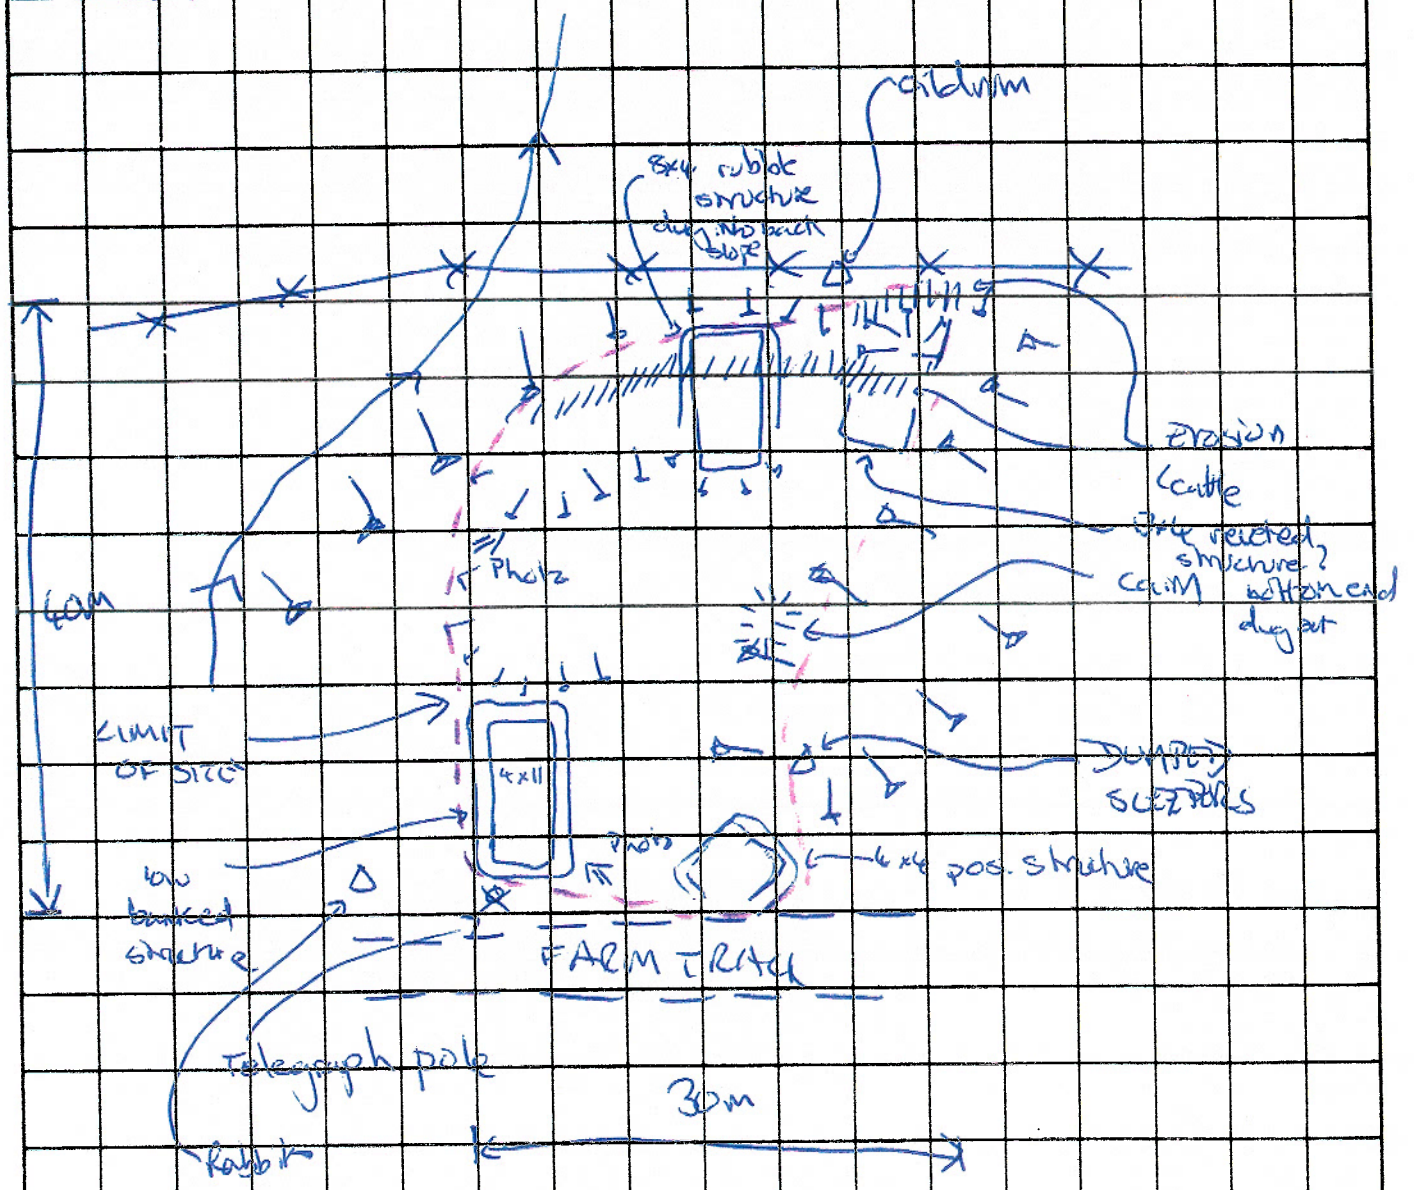 oildrum
8x4 rubble
structure
dug into back
slope
Erosion
cattle
8x4 reveted
structure?
bottom end
dug out
Cairn
Photo
40m
LIMIT
OF SITE
4x11
DUMPED
SLEEPERS
Photo
4x4 pos. structure
low
banked
structure
FARM TRACK
Telegraph pole
30m
Rabbit